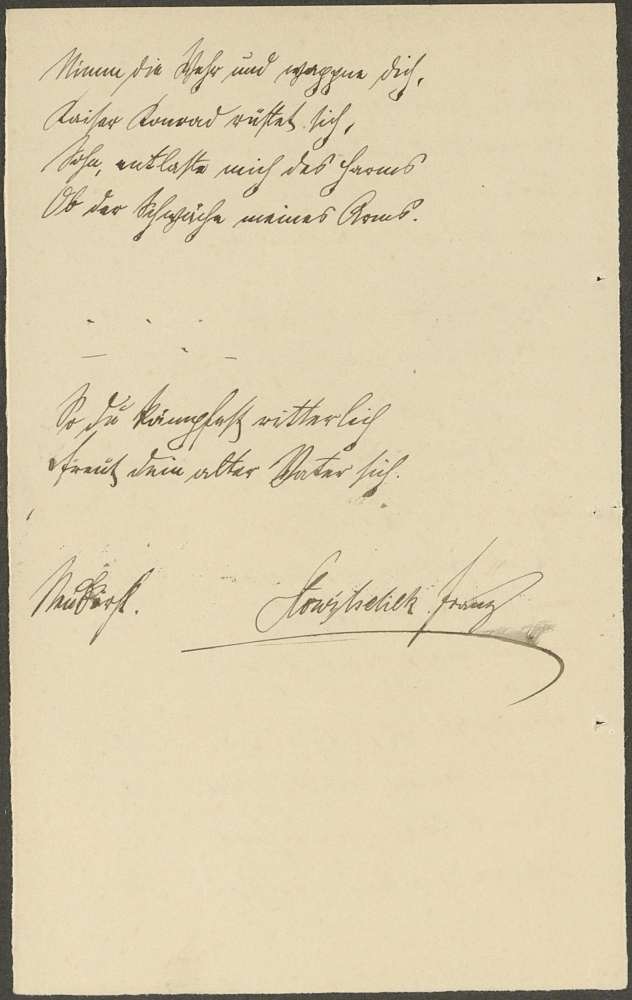 Nimm die Wehr und wappne dich,
Kaiser Konrad rüstet sich,
Sohn, entlaste mich des Harms
Ob der Schwäche meines Arms.
So du kämpfest ritterlich
freut dein alter Vater sich.
Franz